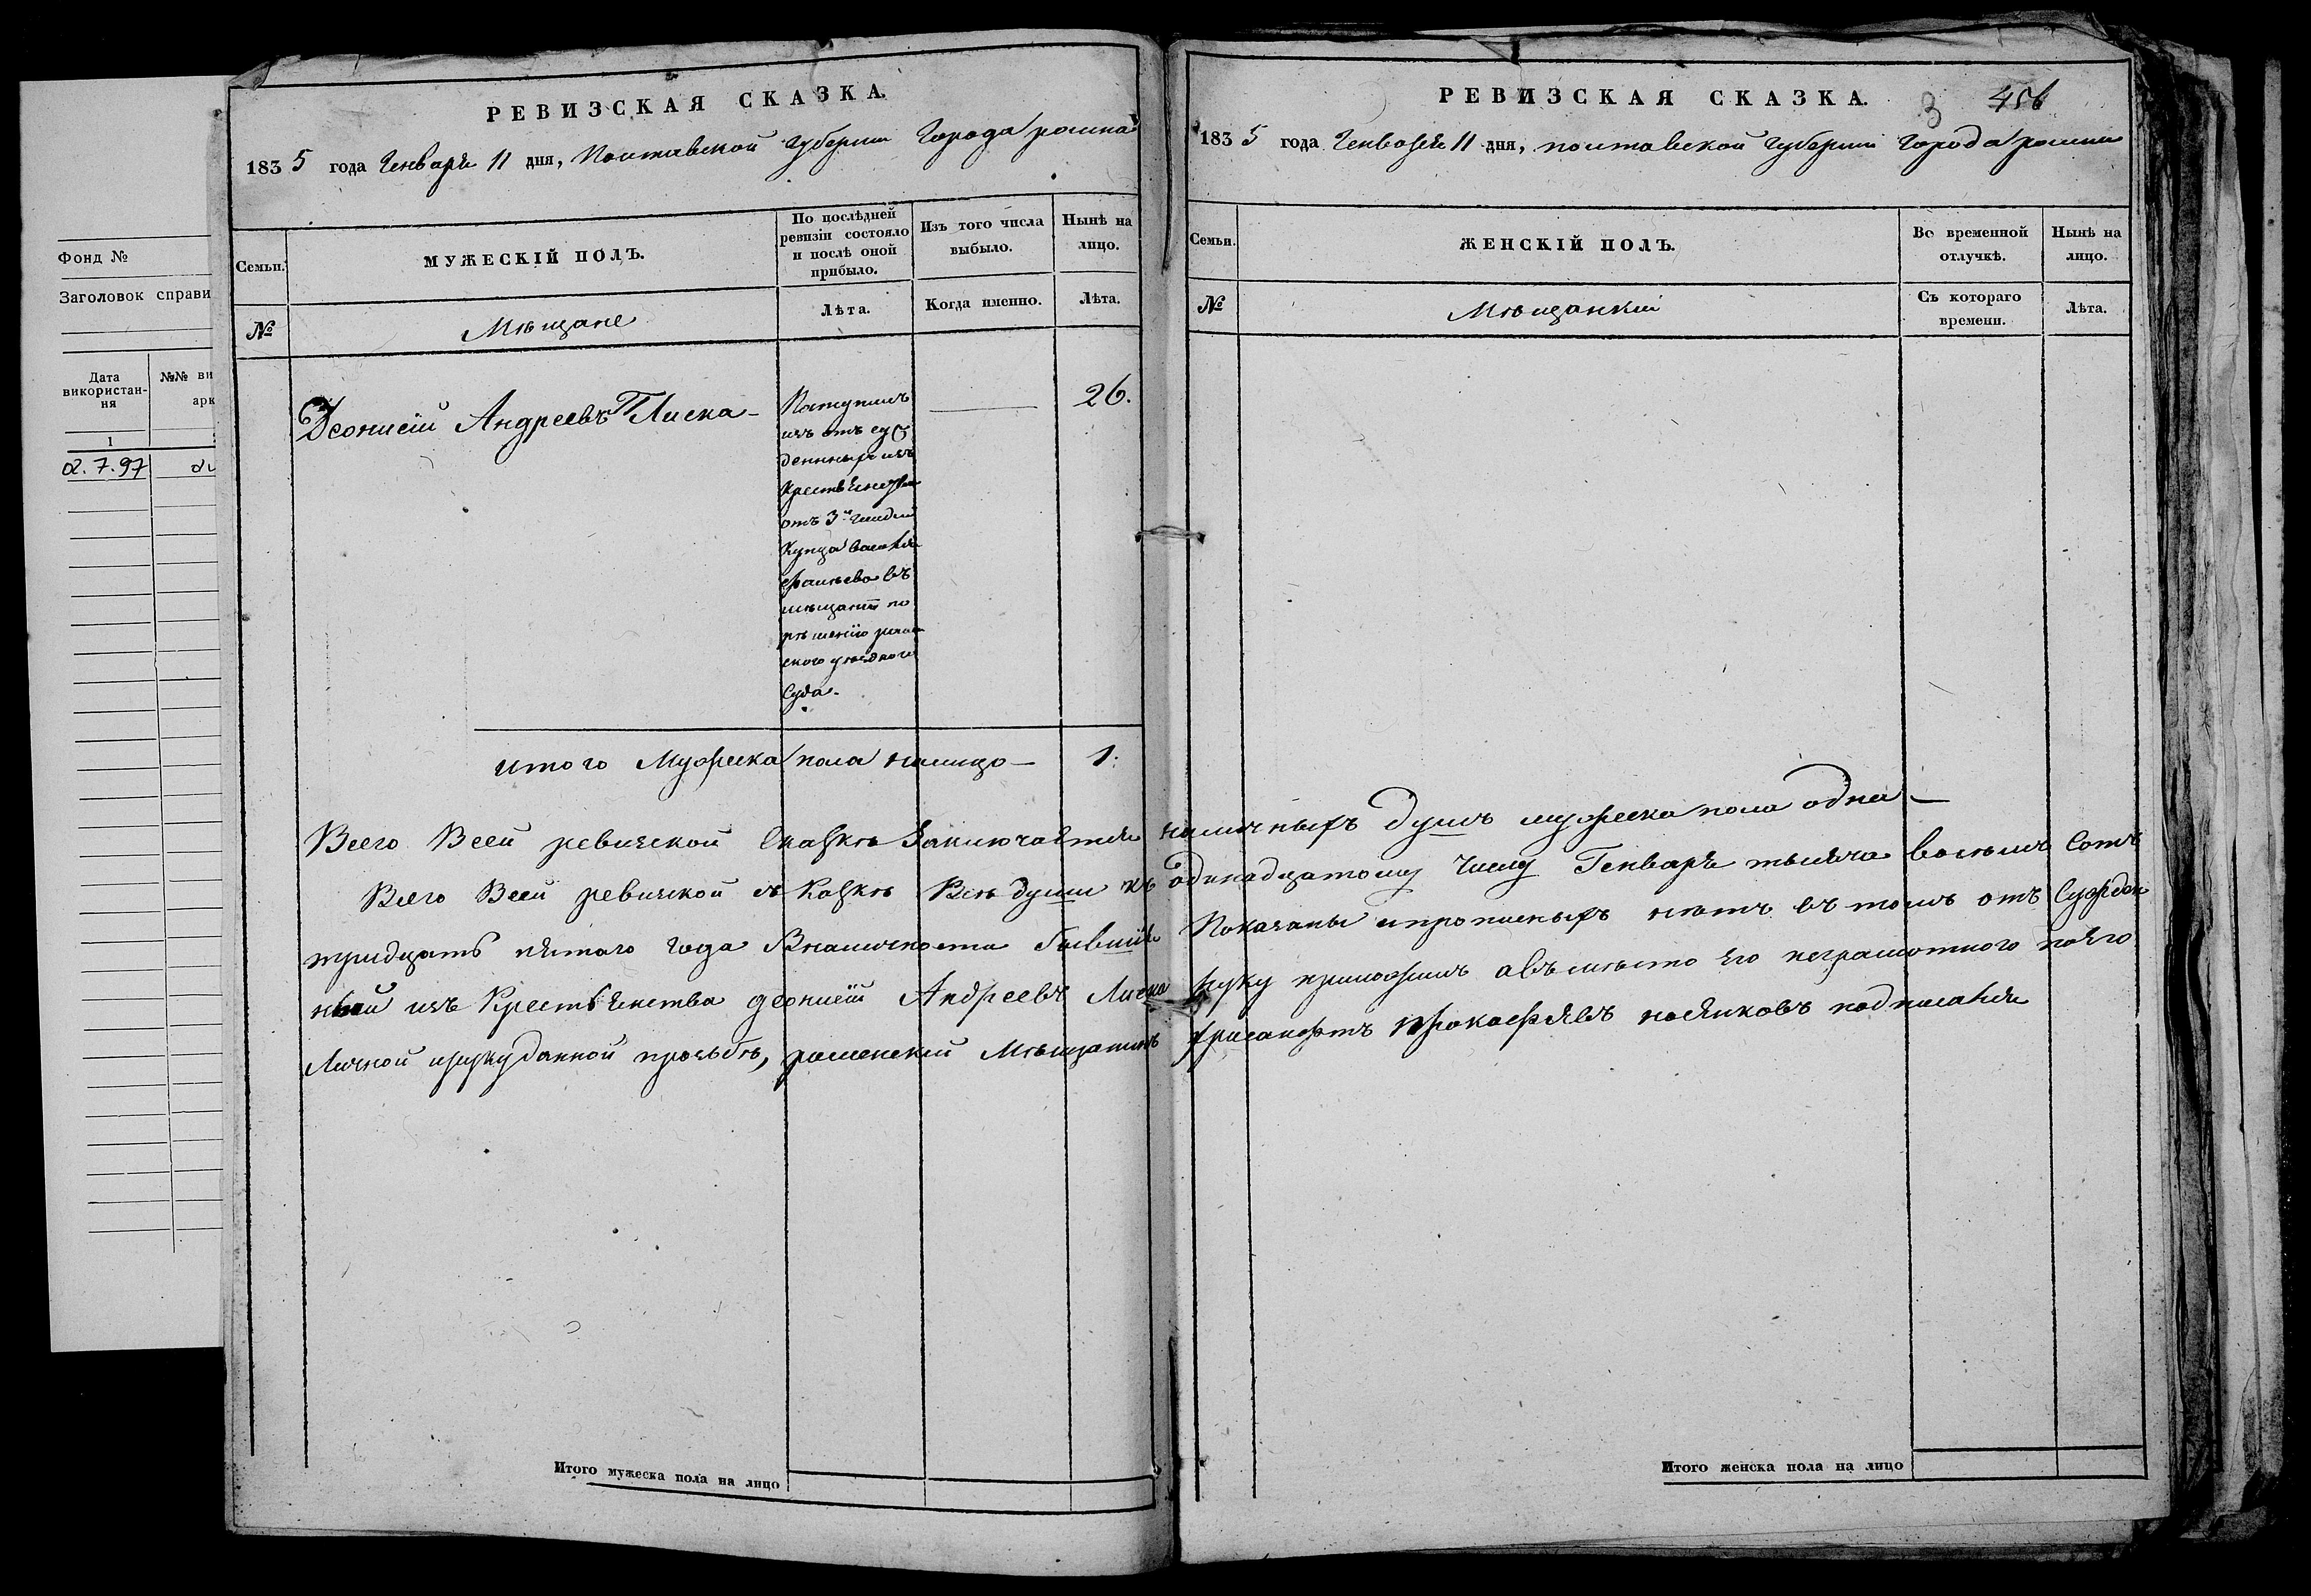 Фонд №
Заголовок справи
Дата використан-ня
№№ ви
арк
1
2.7.97
РЕВИЗСКАЯ СКАЗКА.
1835 года Генваря 11 дня, Полтавской губернии Города ромна
Семьи.
МУЖЕСКІЙ ПОЛЪ.
По послѣдней ревизіи состояло и послѣ оной прибыло.
Изъ того числа выбыло.
Нынѣ на лицо.
№
Мѣщане
Лѣта.
Когда именно.
Лѣта.
Деонисій Андреевъ Лиска
26.
Поступилъ
изъ отъсуж
денныхъ изъ
крестьянства
отъ 3й гилдіи
Купца Василія
въ
мѣщане по
рѣшенію ромен
ского уѣздного
Суда.
итого Мужеска пола налицо 1.
РЕВИЗСКАЯ СКАЗКА.
3 456
1835 года Генваря 11 дня, полтавской губерніи города ромна
Семьи.
ЖЕНСКІЙ ПОЛЪ.
Во временной отлучкѣ.
Нынѣ на лицо.
№
Мѣщанкий
Съ котораго времени.
Лѣта.
Всего Всей ревизской Сказкѣ Заключается наличныхъ душъ мужеска пола одна
Всего Всей ревизской сказкѣ Всѣ души къ одинадцатому Числу Генваря тысяча восѣмъ Сотъ
тридцать пятого года Вналичности бывшія Показаны ипрописныхъ нѣтъ въ томъ отъ Сужден
ный изъ Крестьянства деонисій Андреевъ Лиска руку приложилъ авъмѣсто Его неграмотного поЕго
Личной ирукуданной прозьбѣ, роменскій Мѣщанинъ Хрисанфъ Прокофіевъ подписался
Итого мужеска пола на лицо
Итого женска пола на лицо